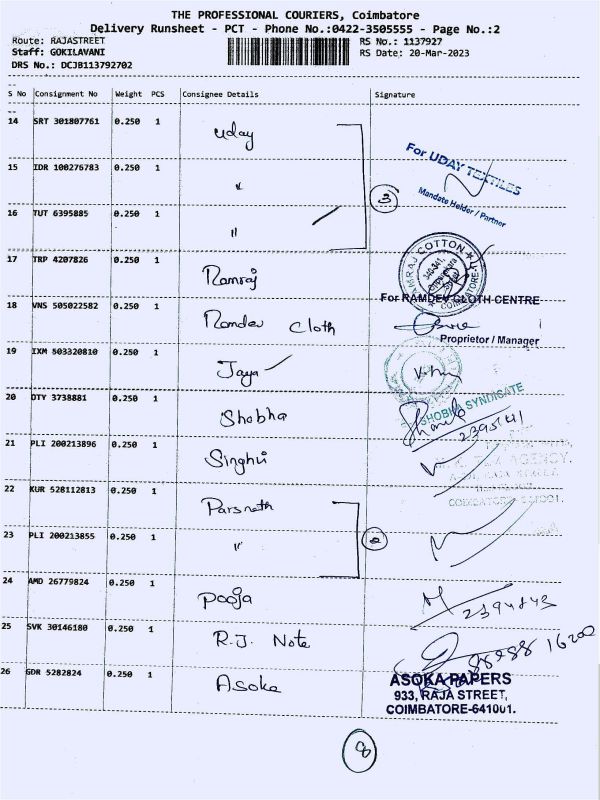 THE PROFESSIONAL COURIERS, Coimbatore
Delivery Runsheet - PCT - Phone No.:0422-3505555 - Page No.:2
Route: RAJASTREET
RS No.: 1137927
Staff: GOKILAVANI
RS Date: 20-Mar-2023
DRS No.: DCJB113792702
S No Consignment No Weight PCS Consignee Details Signature
14 SRT 301807761 0.250 1 Uday
For UDAY TEXTILES
15 IDR 100276783 0.250 1 "
3
Mandate Holder / Partner
16 TUT 6395885 0.250 1 "
17 TRP 4207826 0.250 1 Ramraj
RAMRAJ COTTON
COIMBATORE
18 VNS 505022582 0.250 1 Ramdev Cloth
For RAMDEV CLOTH CENTRE
Proprietor / Manager
19 IXM 503320810 0.250 1 Jaya
20 DTY 3738881 0.250 1 Shobha
SHOBHA SYNDICATE
21 PLI 200213896 0.250 1 Singhvi
AGENCY,
COIMBATORE
22 KUR 528112813 0.250 1 Parsnath
23 PLI 200213855 0.250 1 "
2
24 AMD 26779824 0.250 1 Pooja
2394843
25 SVK 30146180 0.250 1 R.J. Note
26 GDR 5282824 0.250 1 Asoka
ASOKA PAPERS
933, RAJA STREET,
COIMBATORE-641001.
8